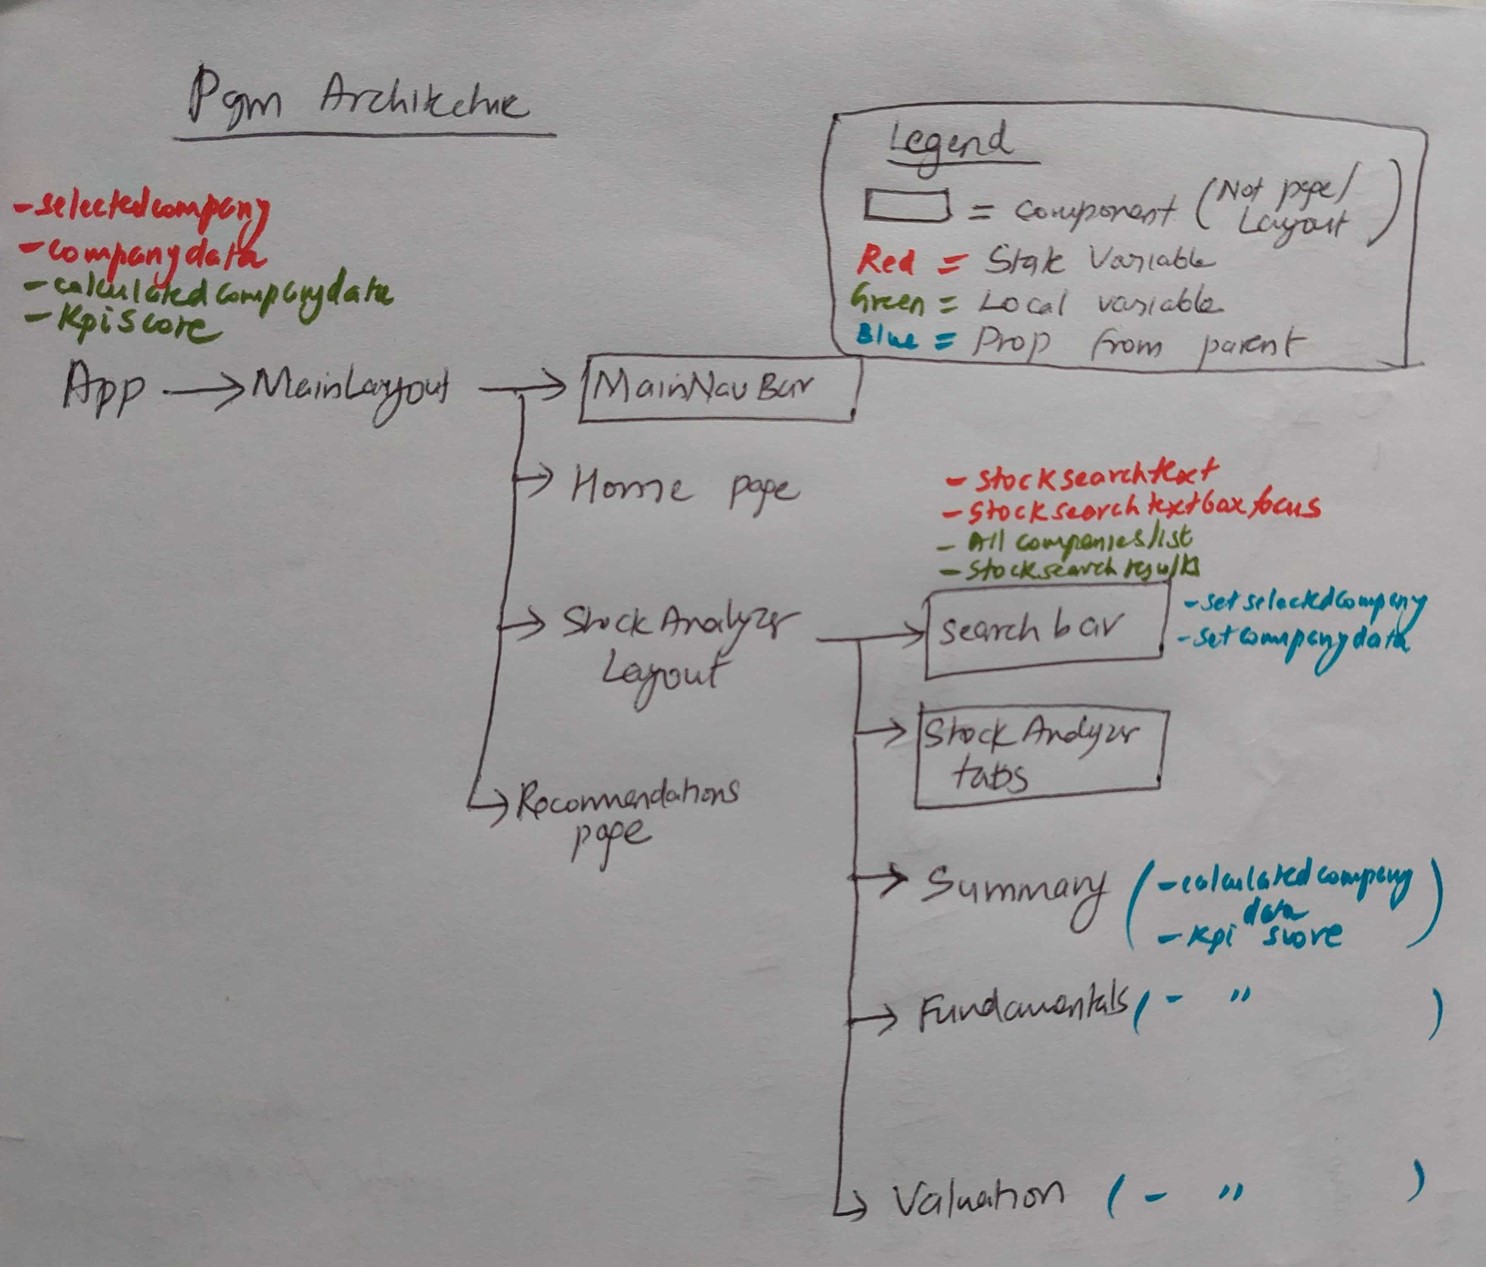 Pgm Architecture
Legend
= Component (Not page/
Layout)
Red = State Variable
Green = Local variable
Blue = Prop from parent
- selectedcompany
- companydata
- calculatedcompanydata
- KpiScore
App → MainLayout → MainNavBar
→ Home page
- stocksearchtext
- stocksearchtextboxfocus
- All companieslist
- stocksearchresults
→ StockAnalyzer
Layout
→ search bar
- setselectedcompany
- setcompanydata
→ StockAnalyzer
tabs
→ Recommendations
page
→ Summary (- calculatedcompany
data
- Kpi score)
→ Fundamentals (- " )
→ Valuation (- " )